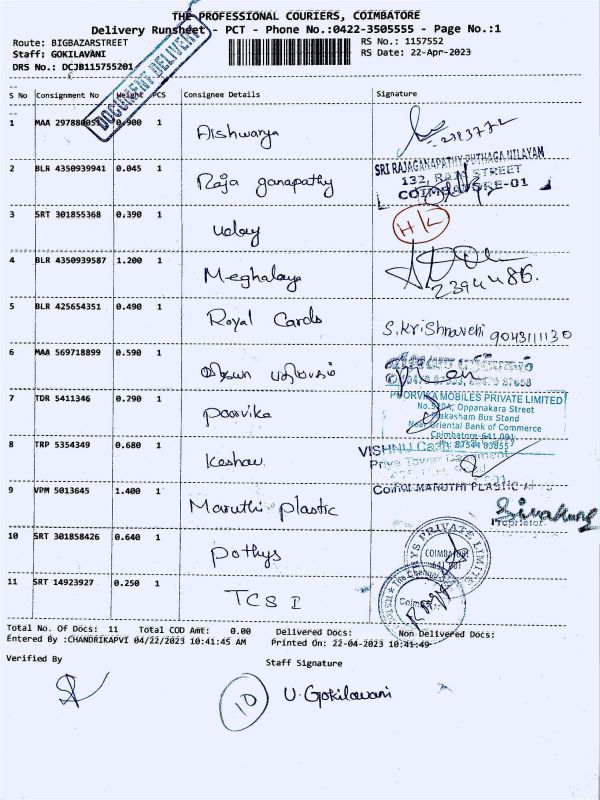 THE PROFESSIONAL COURIERS, COIMBATORE
Delivery Runsheet - PCT - Phone No.:0422-3505555 - Page No.:1
Route: BIGBAZARSTREET RS No.: 1157552
Staff: GOKILAVANI RS Date: 22-Apr-2023
DRS No.: DCJB115755201
DOCUMENT DELIVERY
S No Consignment No Weight PCS Consignee Details Signature
1 MAA 0.900 1 Aishwarya
2 BLR 4350939941 0.045 1 Raja ganapathy
SRI RAJAGANAPATHY PUTHAGA NILAYAM
132, RAJA STREET
COIMBATORE-01
3 SRT 301855368 0.390 1 Uday H/L
4 BLR 4350939587 1.200 1 Meghalaya
5 BLR 425654351 0.490 1 Royal Cards S.Krishnaveni 9043111130
6 MAA 569718899 0.590 1
7 TDR 5411346 0.290 1 Poorvika
POORVIKA MOBILES PRIVATE LIMITED
Oppanakara Street
Bus Stand
Near Oriental Bank of Commerce
Coimbatore 641 001
8 TRP 5354349 0.680 1 Keshav
9 VPM 5013645 1.400 1 Maruthi plastic
MARUTHI PLASTIC
Sivakumar
Proprietor
10 SRT 301858426 0.640 1 Pothys
11 SRT 14923927 0.250 1 TCS I
Total No. Of Docs: 11 Total COD Amt: 0.00 Delivered Docs: Non Delivered Docs:
Entered By :CHANDRIKAPVI 04/22/2023 10:41:45 AM Printed On: 22-04-2023 10:41:49
Verified By Staff Signature
10 U.Gokilavani